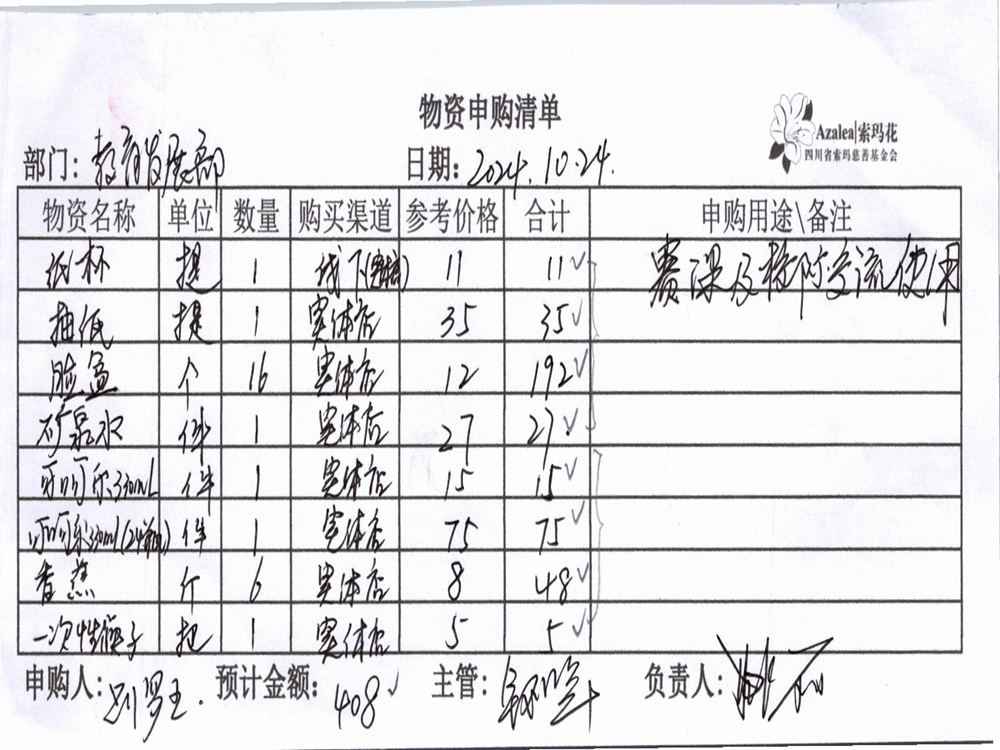 物资申购清单
Azalea|索玛花
四川省索玛慈善基金会
部门：教育发展部 日期：2024.10.24.
物资名称 单位 数量 购买渠道 参考价格 合计 申购用途\备注
纸杯 提 1 线下 11 11 赛课及校际交流使用
抽纸 提 1 实体店 35 35
脸盆 个 16 实体店 12 192
矿泉水 件 1 实体店 27 27
件 1 实体店 15 15
件 1 实体店 75 75
香蕉 斤 6 实体店 8 48
一次性筷子 把 1 实体店 5 5
申购人： 预计金额：408 主管： 负责人：